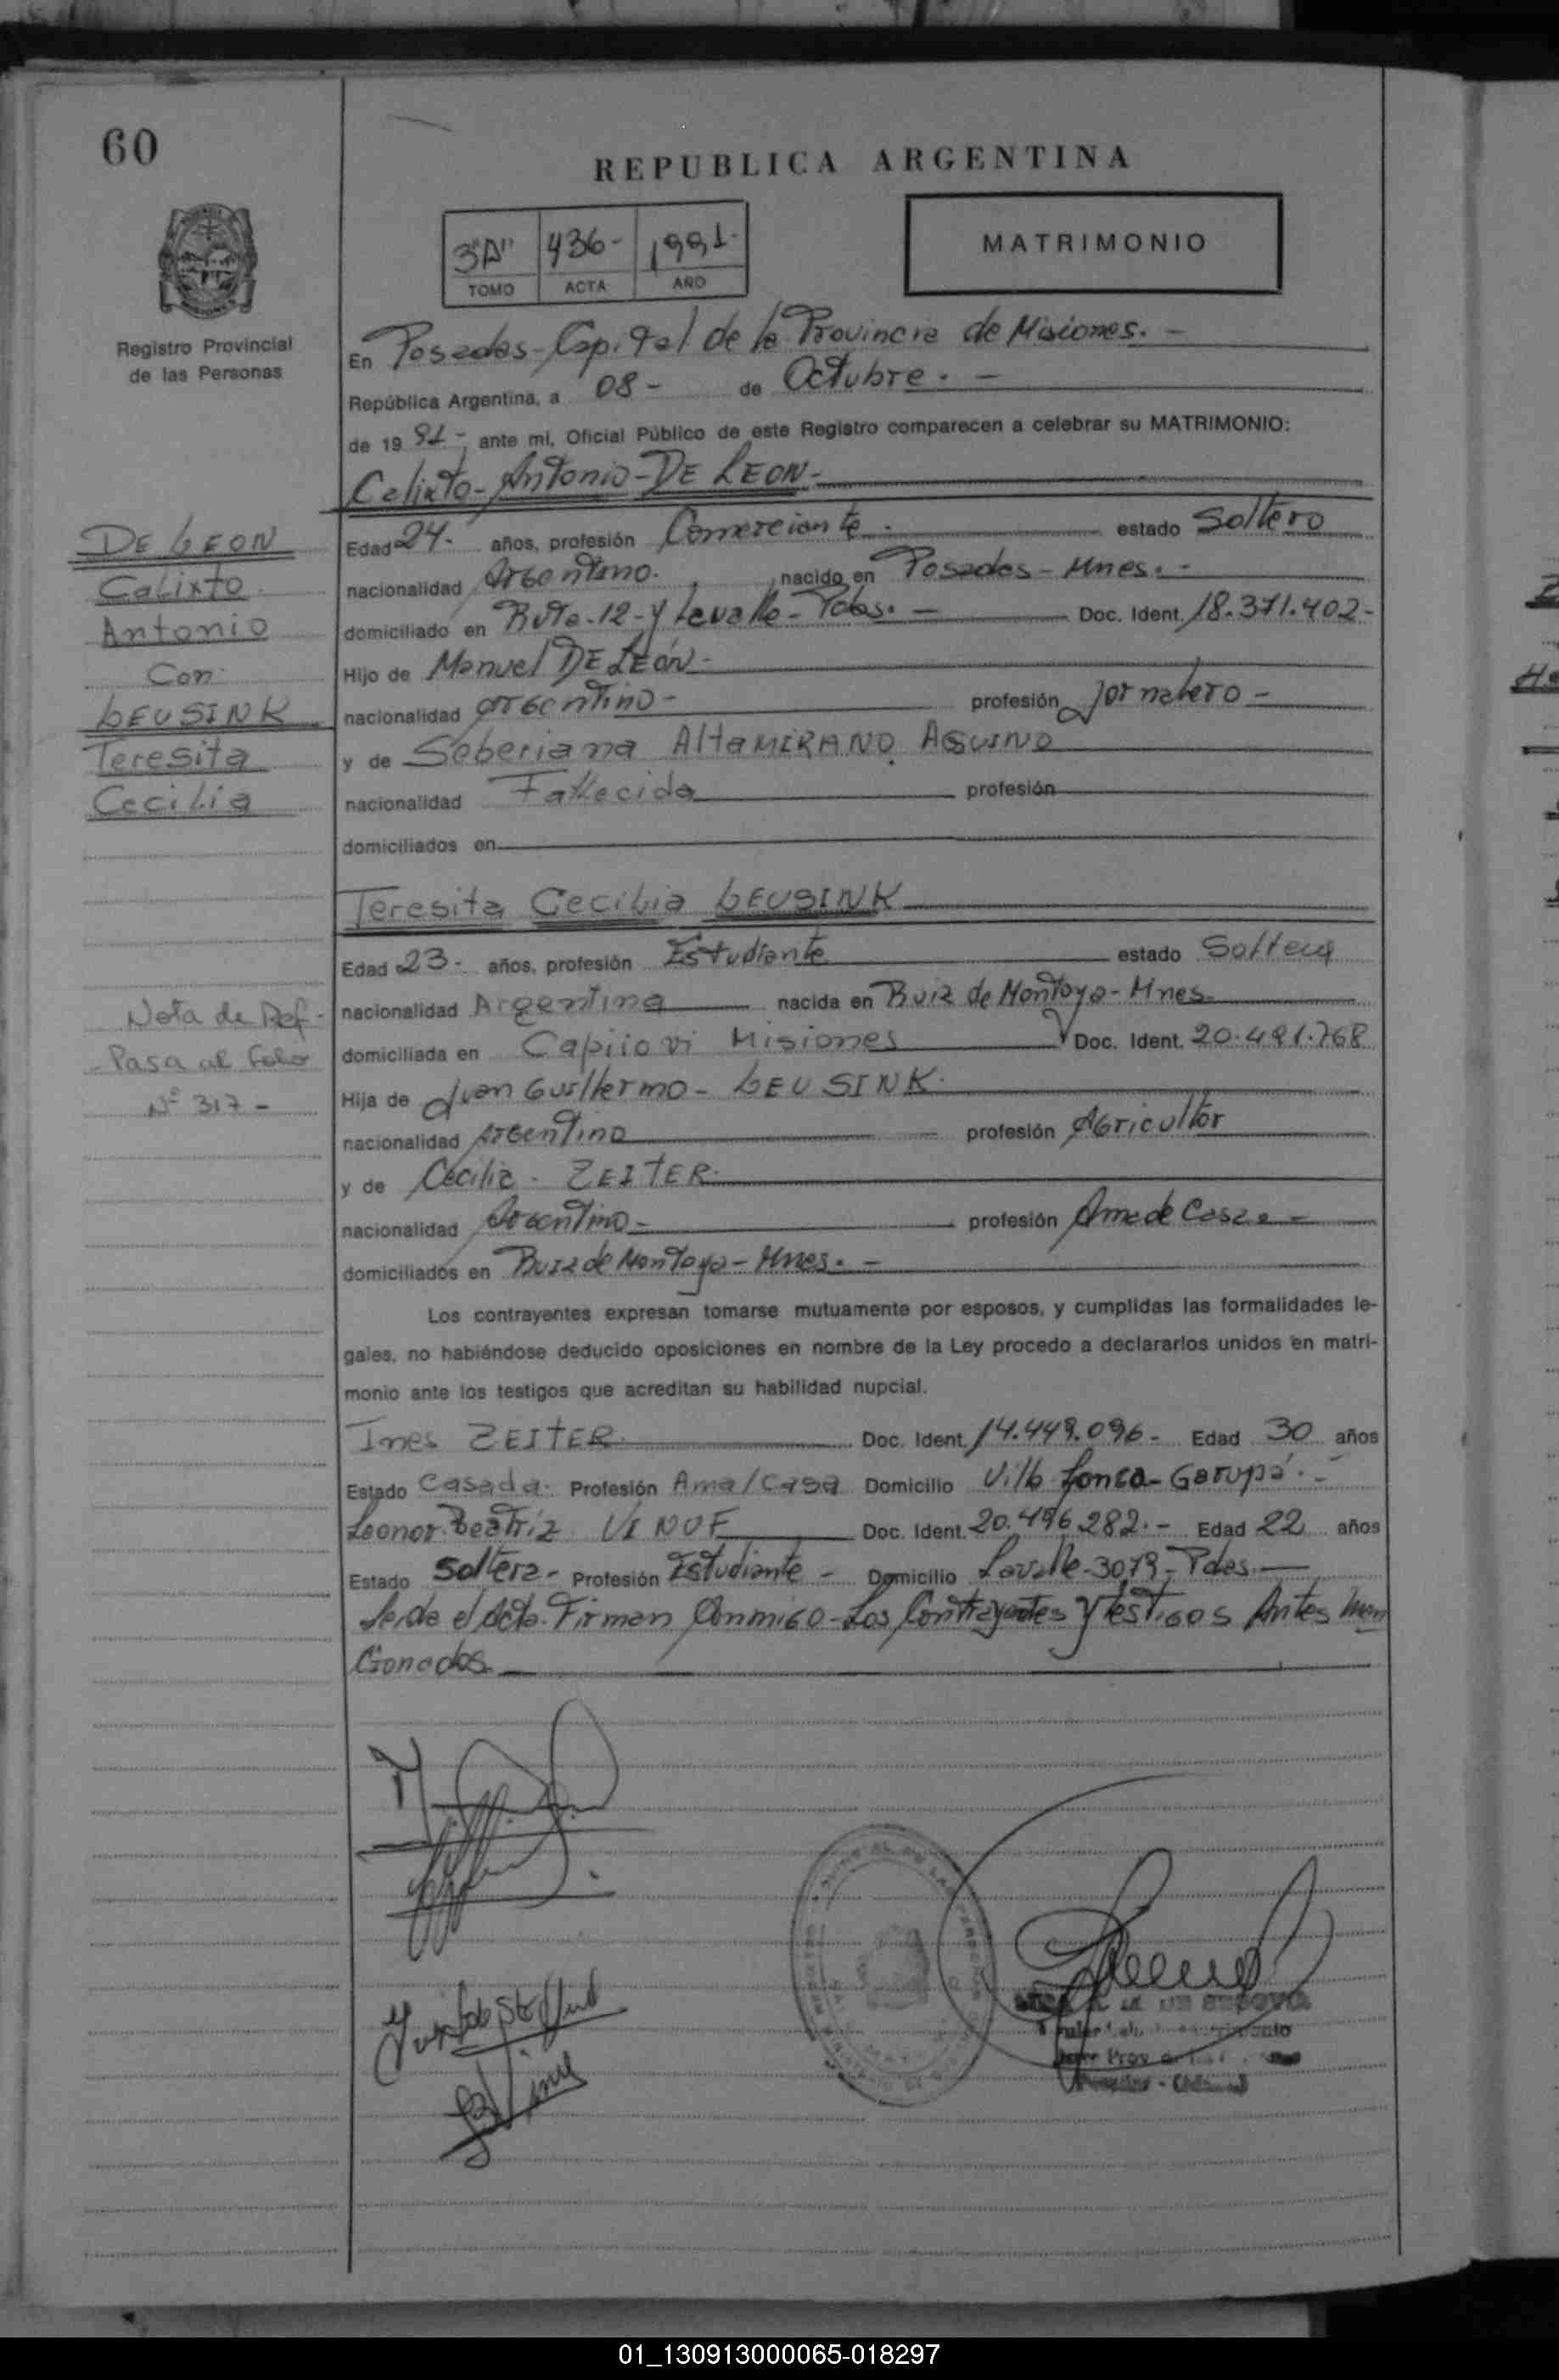 60
REPUBLICA ARGENTINA
3"A" 436- 1991-
TOMO ACTA AÑO
MATRIMONIO
MISIONES
Registro Provincial
de las Personas
En Posadas-Capital de la Provincia de Misiones.-
República Argentina, a 08- de Octubre.-
de 19 91- ante mi, Oficial Público de este Registro comparecen a celebrar su MATRIMONIO:
Calixto-Antonio-DE LEON-
DE LEON
Calixto
Antonio
Con
LEUSINK
Teresita
Cecilia
Edad 24- años, profesión Comerciante- estado Soltero
nacionalidad Argentino. nacido en Posadas-Mnes.-
domiciliado en Ruta-12-y Lavalle-Pdas.- Doc. Ident. 18.371.402-
Hijo de Manuel DE LEÓN-
nacionalidad argentino- profesión Jornalero-
y de Seberiana ALTAMIRANO AQUINO
nacionalidad Fallecida profesión
domiciliados en
Teresita Cecilia LEUSINK
Edad 23- años, profesión Estudiante estado Soltera
nacionalidad Argentina nacida en Ruiz de Montoya-Mnes-
domiciliada en Capiiovi Misiones Doc. Ident. 20.491.768
Hija de Juan Guillermo-LEUSINK-
nacionalidad Argentino profesión Agricultor
y de Cecilia-ZEITER-
nacionalidad Argentina- profesión Ama de Casa.-
domiciliados en Ruiz de Montoya-Mnes.-
Nota de Ref-
-Pasa al folio
Nº 317-
Los contrayentes expresan tomarse mutuamente por esposos, y cumplidas las formalidades le-
gales, no habiéndose deducido oposiciones en nombre de la Ley procedo a declararlos unidos en matri-
monio ante los testigos que acreditan su habilidad nupcial.
Ines ZEITER- Doc. Ident. 14.449.096- Edad 30 años
Estado Casada- Profesión Ama/Casa Domicilio Villa Lonca-Garupá.-
Leonor Beatriz Doc. Ident. 20.496.282.- Edad 22 años
Estado Soltera- Profesión Estudiante- Domicilio Lavalle-3079-Pdas.-
Leida el Acta-Firman Conmigo-Los Contrayentes y testigos Antes Men
Cionados.-
01_130913000065-018297